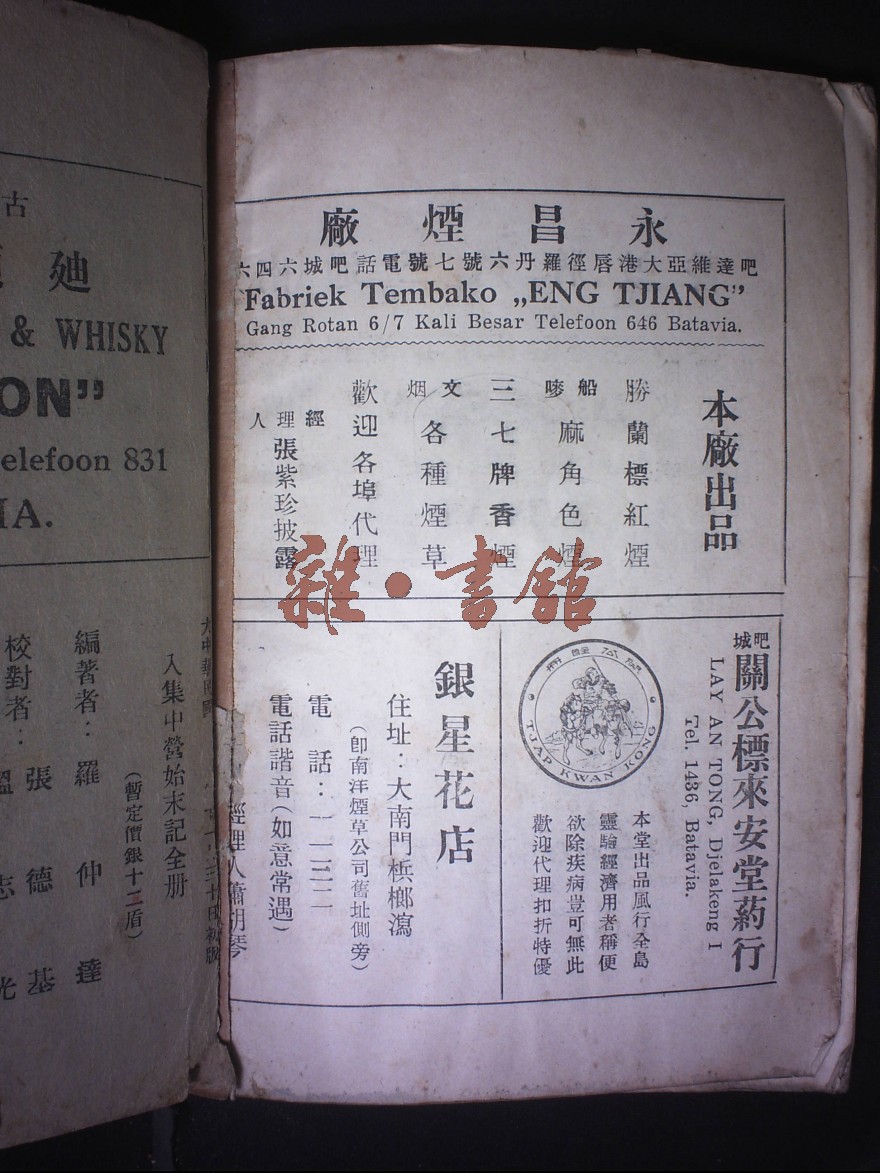 永昌煙廠
吧達維亞大港唇徑羅丹六號七號電話吧城六四六
Fabriek Tembako „ENG TJIANG”
Gang Rotan 6/7 Kali Besar Telefoon 646 Batavia.
本廠出品
勝蘭標紅煙
船嘜麻角色煙
三七牌香煙
文烟各種煙草
歡迎各埠代理
經理人張紫珍披露
雜·書館
吧城關公標來安堂葯行
LAY AN TONG, Djelakeng I
Tel. 1436, Batavia.
TJAP KWAN KONG
本堂出品風行全島
靈驗經濟用者稱便
欲除疾病豈可無此
歡迎代理扣折特優
銀星花店
住址：大南門梹榔瀉
（卽南洋煙草公司舊址側旁）
電話：一一三二
電話諧音（如意常遇）
經理人蕭胡琴
古
廸
& WHISKY
ON”
elefoon 831
IA.
入集中營始末記全册
（暫定價銀十二盾）
編著者：羅仲達
校對者：張德基
溫志光